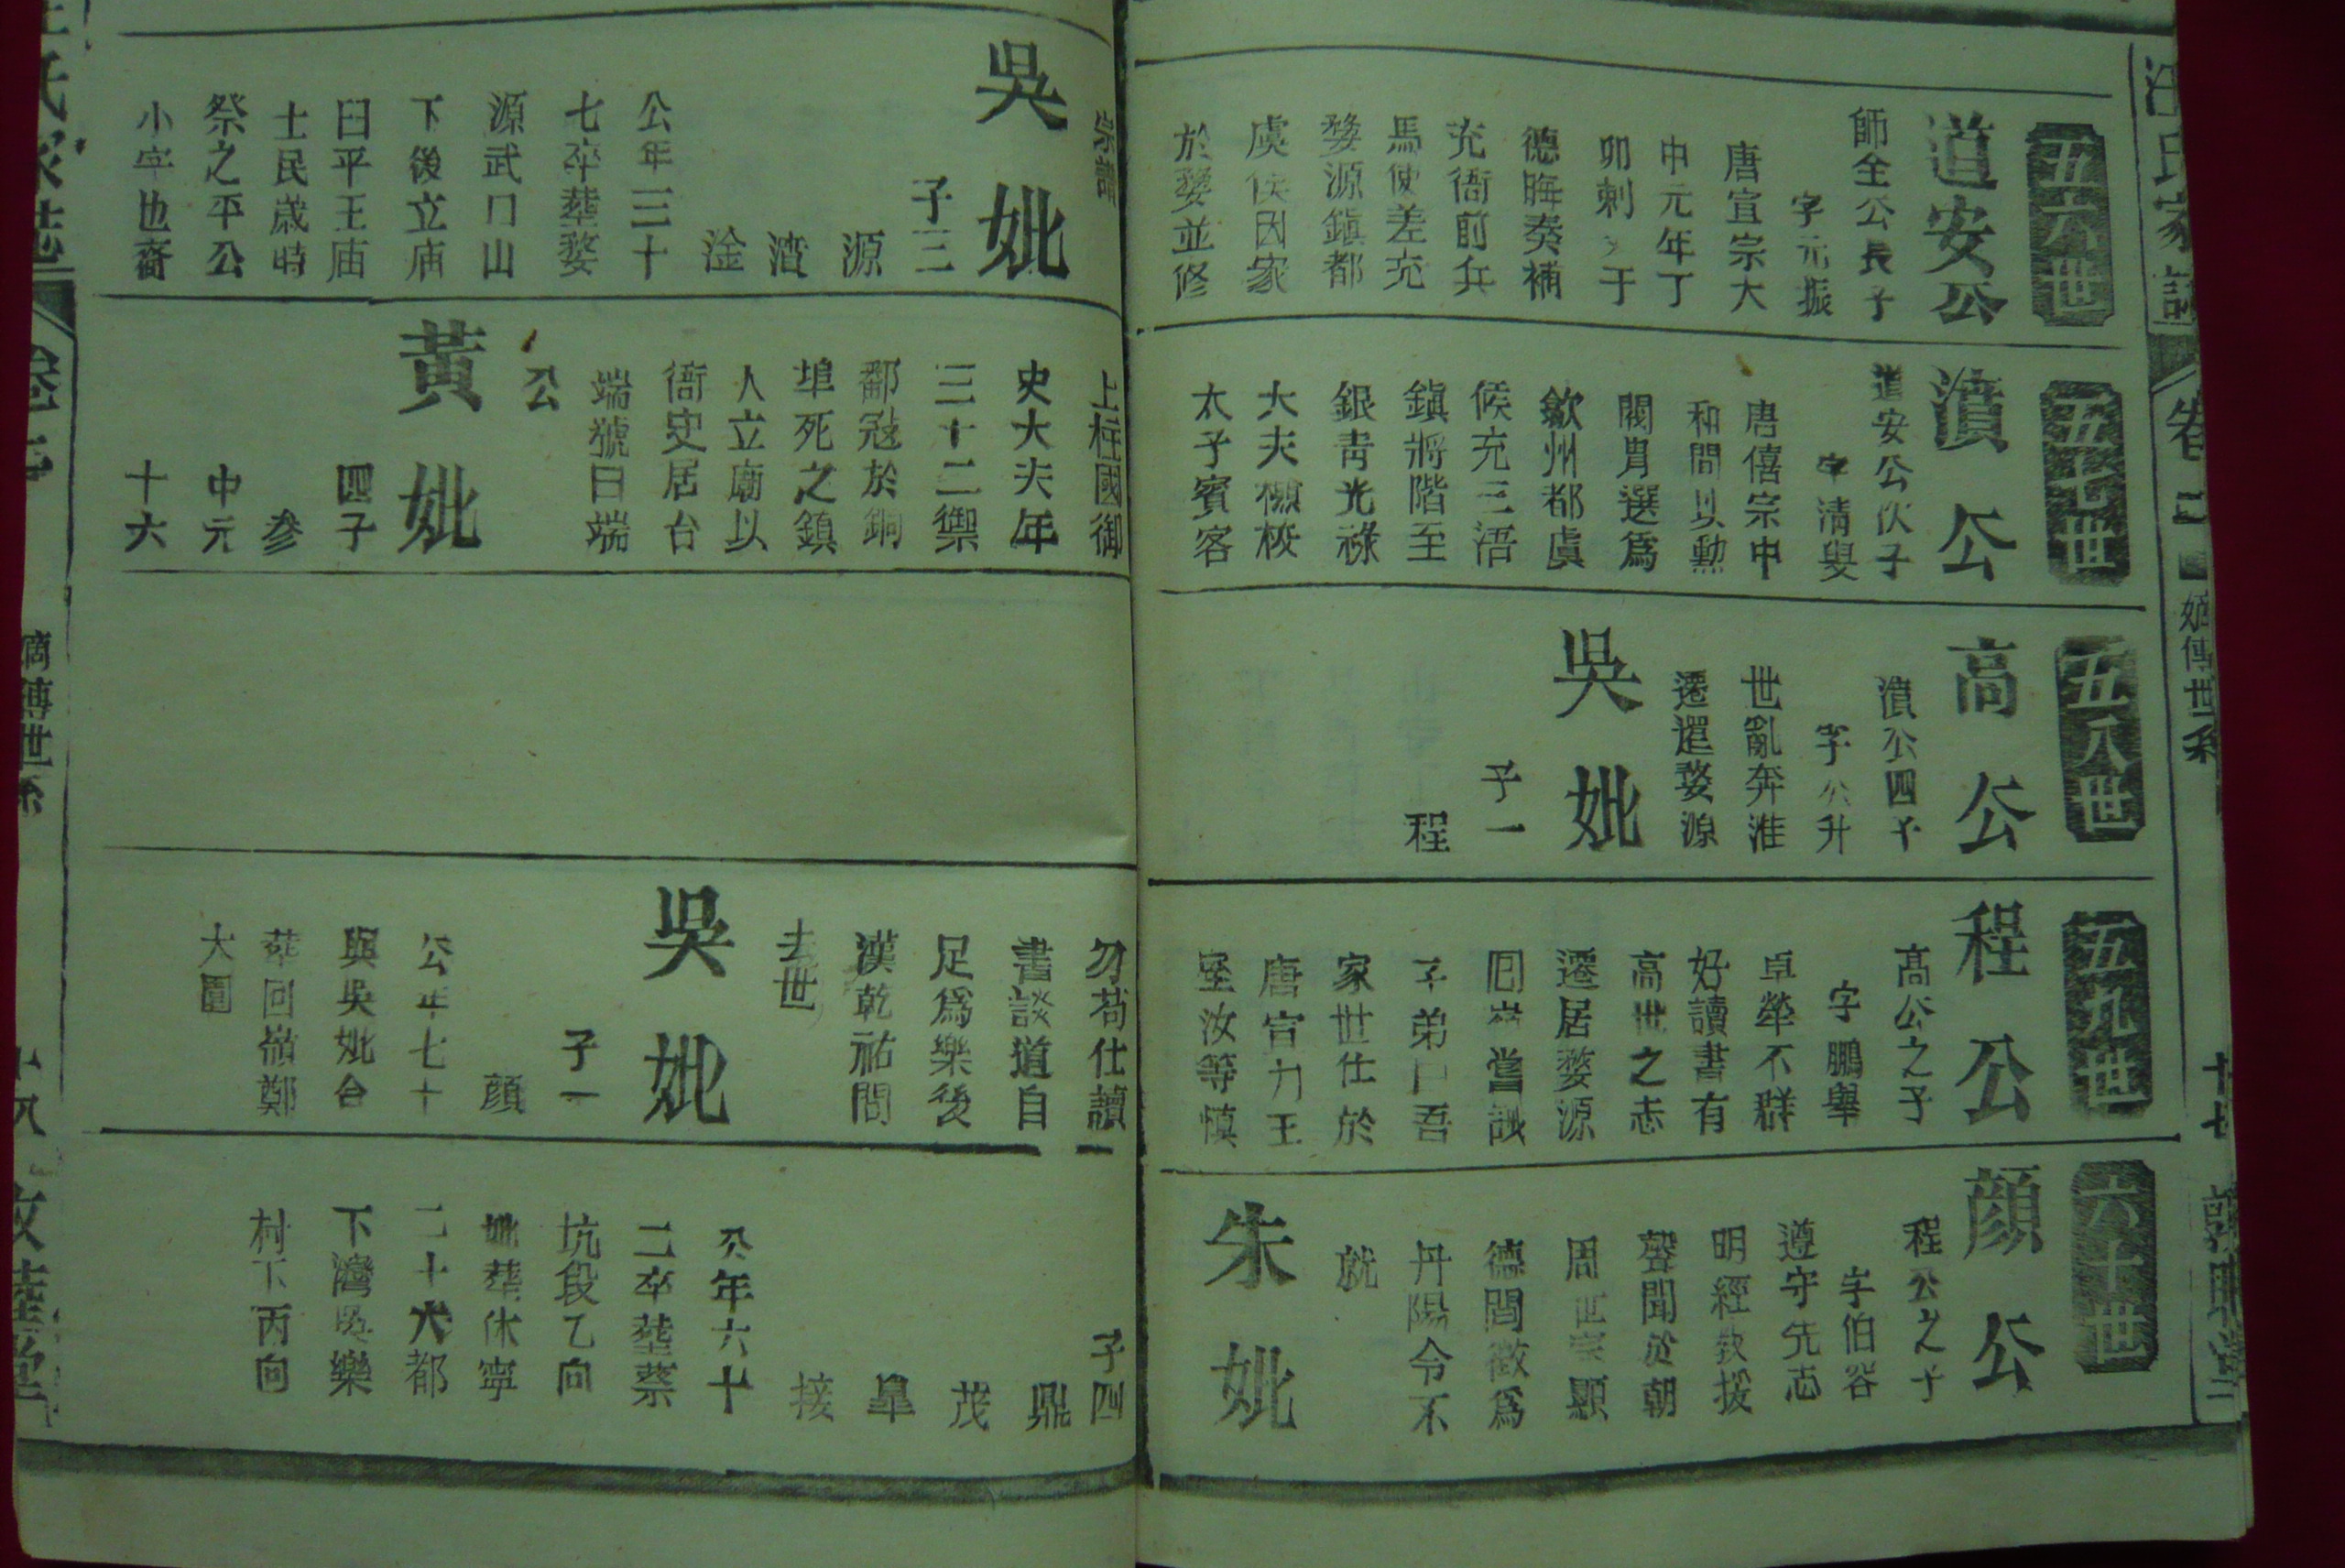 汪氏家譜
卷二
嫡傳世系
十七
五六世
道安公
師全公長子
字元振
唐宣宗大
中元年丁
卯刺 于
德晦奏補
充衙前兵
馬使差充
婺源鎮都
虞候因家
於婺並修
宗譜
吳妣
子三
源
濆
淦
公年三十
七卒塟婺
源武口山
下後立庙
曰平王庙
士民歲時
祭之平公
小字也裔
五七世
濆公
道安公次子
字清叟
唐僖宗中
和間以勳
閥胄選爲
歙州都虞
候充三浯
鎮將階至
銀青光祿
大夫檢校
太子賓客
上柱國御
史大夫年
三十二禦
鄱冦於銅
埠死之鎮
人立廟以
衙史居台
端號曰端
公
黃妣
四子
參
中元
十六
五八世
高公
濆公四子
字公升
世亂奔淮
遷還婺源
吳妣
子一
程
五九世
程公
髙公之子
字鵬舉
卓犖不群
好讀書有
高世之志
遷居婺源
囘嶺嘗誡
子弟曰吾
家世仕於
唐官力王
室汝等慎
勿苟仕讀
書談道自
足爲樂後
漢乾祐間
去世
吳妣
子一
顔
公年七十
與吳妣合
葬回嶺鄭
大園
六十世
顔公
程公之子
字伯容
遵守先志
明經教授
聲聞於朝
周世宗顯
德間徵爲
丹陽令不
就
朱妣
子四
鼎
茂
皐
接
公年六十
二卒塟蔡
坑段乙向
妣葬休寧
二十六都
下灣吳樂
村下丙向
嫡傳世系